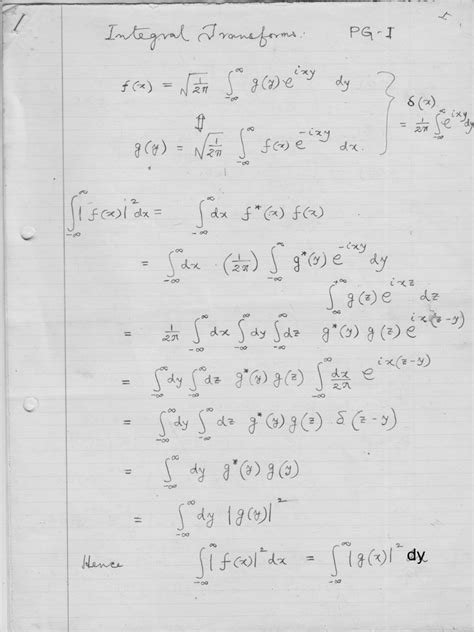 1 Integral Transforms. PG-I
f(x) = √(1/2π) ∫_{-∞}^{∞} g(y) e^{ixy} dy
⇕
g(y) = √(1/2π) ∫_{-∞}^{∞} f(x) e^{-ixy} dx.
} δ(x)
= 1/2π ∫_{-∞}^{∞} e^{ixy} dy
∫_{-∞}^{∞} |f(x)|² dx = ∫_{-∞}^{∞} dx f*(x) f(x)
= ∫_{-∞}^{∞} dx (1/2π) ∫_{-∞}^{∞} g*(y) e^{-ixy} dy
∫_{-∞}^{+∞} g(z) e^{ixz} dz
= 1/2π ∫_{-∞}^{∞} dx ∫_{-∞}^{∞} dy ∫_{-∞}^{∞} dz g*(y) g(z) e^{ix(z-y)}
= ∫_{-∞}^{∞} dy ∫_{-∞}^{∞} dz g*(y) g(z) ∫_{-∞}^{∞} dx/2π e^{ix(z-y)}
= ∫_{-∞}^{∞} dy ∫_{-∞}^{∞} dz g*(y) g(z) δ(z-y)
= ∫_{-∞}^{∞} dy g*(y) g(y)
= ∫_{-∞}^{∞} dy |g(y)|²
Hence ∫_{-∞}^{∞} |f(x)|² dx = ∫_{-∞}^{∞} |g(x)|² dy